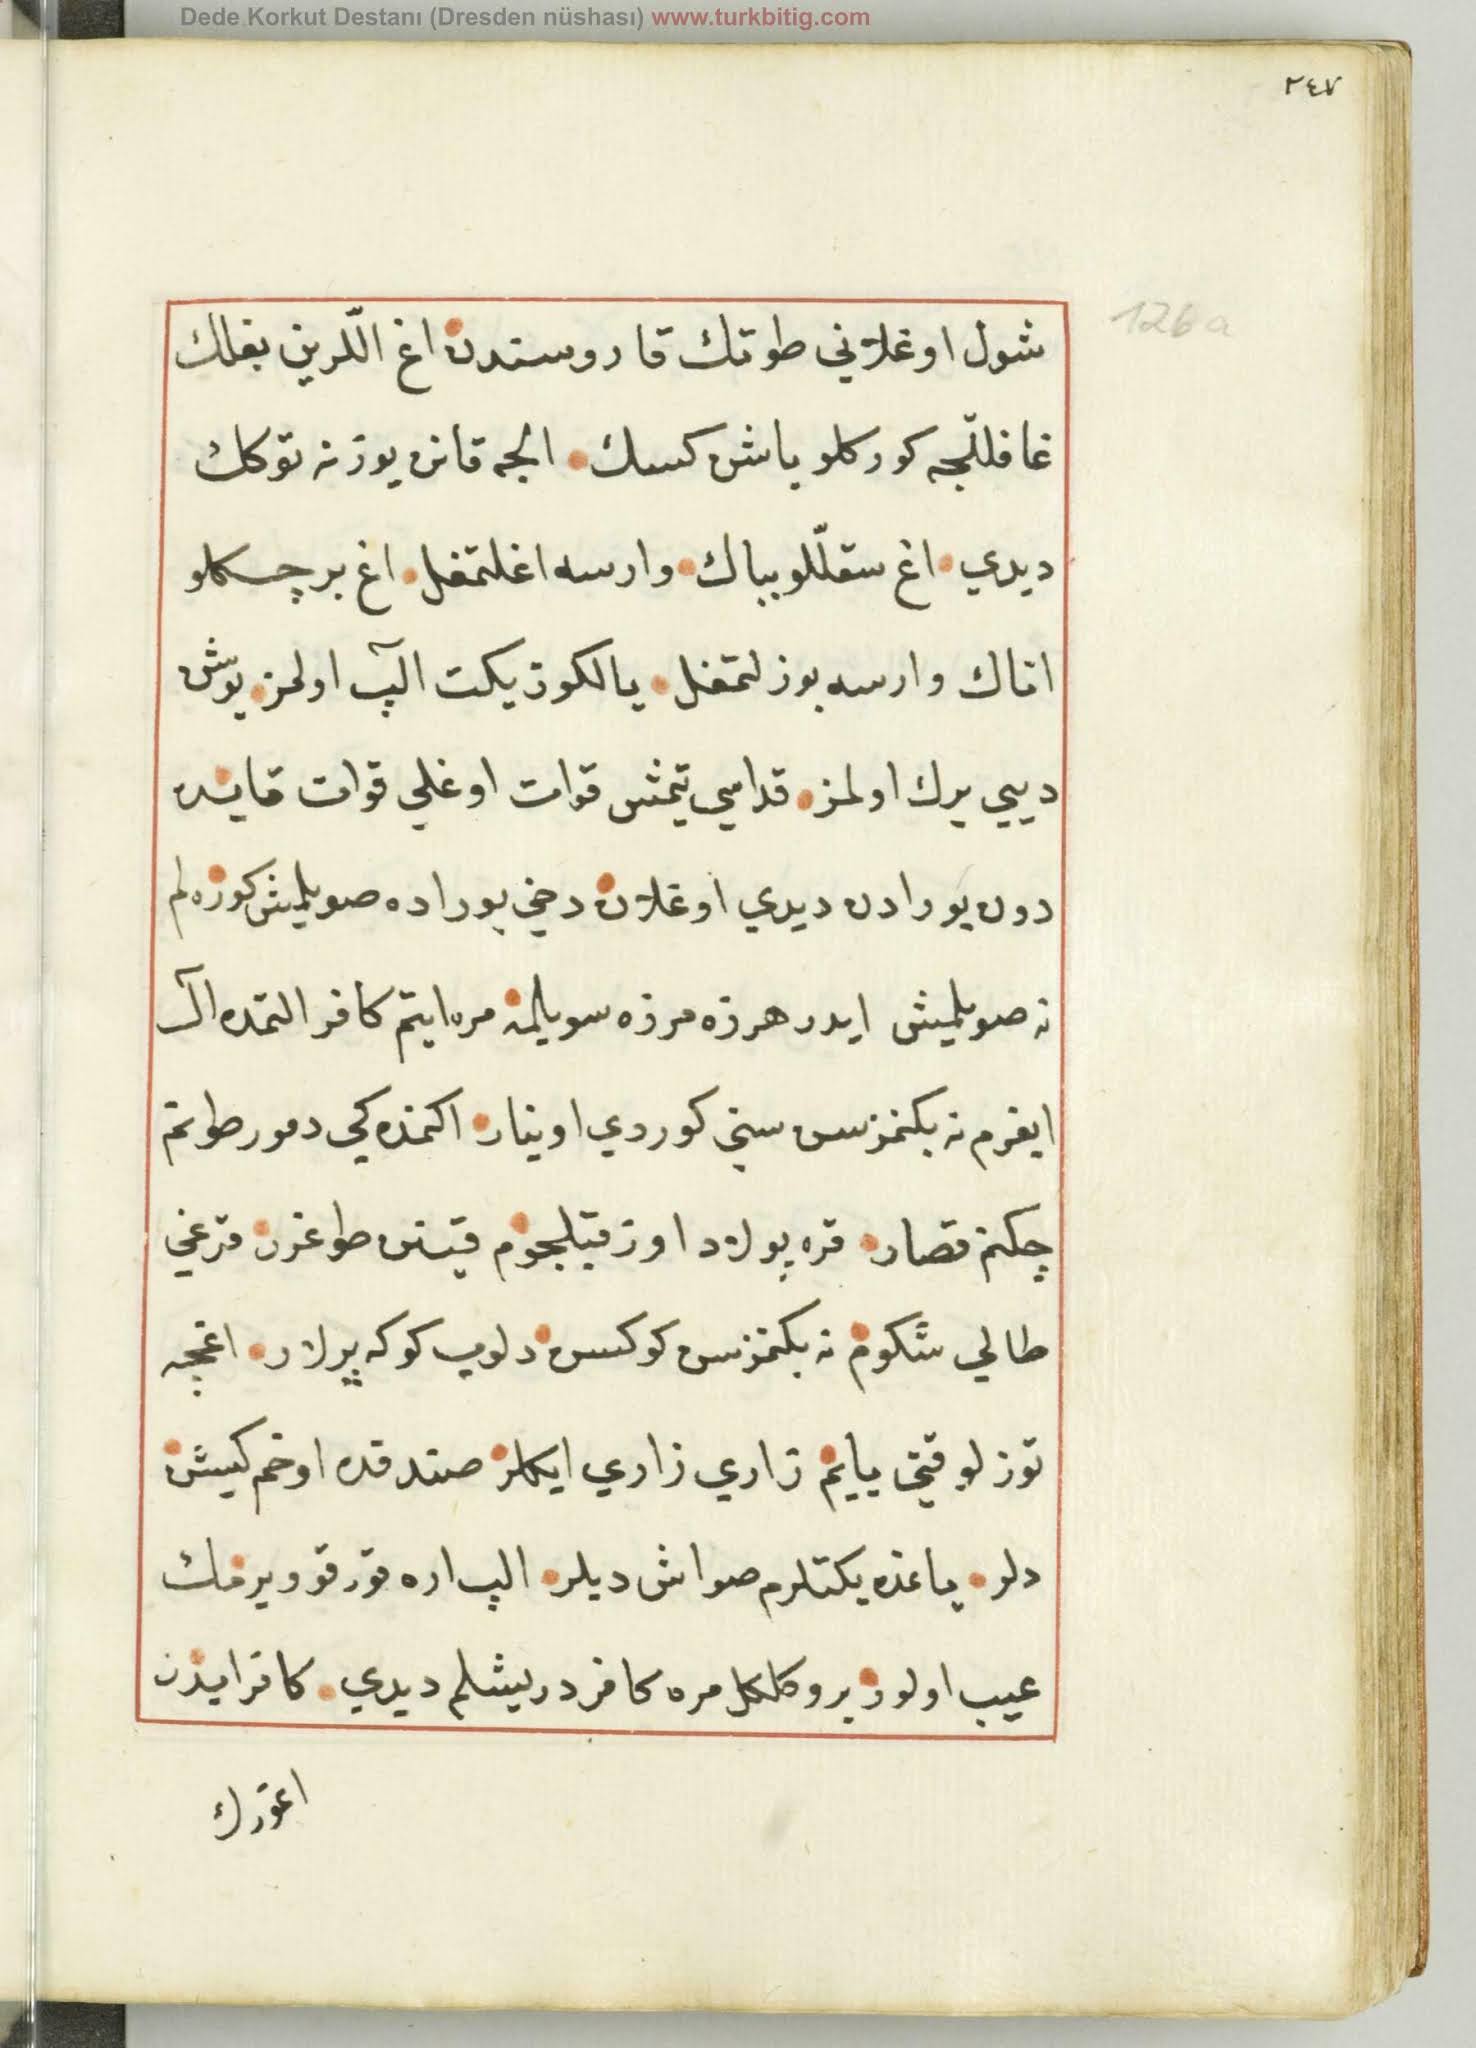 Dede Korkut Destanı (Dresden nüshası) www.turkbitig.com
٢٤٧
126a
شول اوغلاني طوتك قاروسندن اغ اللّرين بغلك
غافللّجه كوركلو باش كسك الجه قانن يوزنه توكك
ديدي اغ سقلّلو بباك وارسه اغلتمغل اغ برچكلو
اناك وارسه بوزلتمغل يالكوز يكت الپ اولمز يوشن
ديبي برك اولمز قداسي يتمش قوات اوغلي قوات قاينده
دون بورادن ديدي اوغلان دخي بوراده صويلمش كوره لم
نه صويلمش ايدر هرزه مرزه سويلمه مره ايتم كافر التمده ال
ايغرم نه بكنمزسن سني كوردي اوينار اكنمده كي دمور طونم
چكنم قصار قره پولاد اوز قيلجوم قينن طوغرر قرغي
طالي سنكوم نه بكنمزسن كوكسن دلوب كوكه پرلار اغجه
توزلو قتي يايم زاري زاري ايكلر صندقده اوخم كيشن
دلر ياغده يكتلرم صواش ديلر الپ اره قورقو ويرمك
عيب اولور برو كلكل مره كافر دريشلم ديدي كافر ايدر